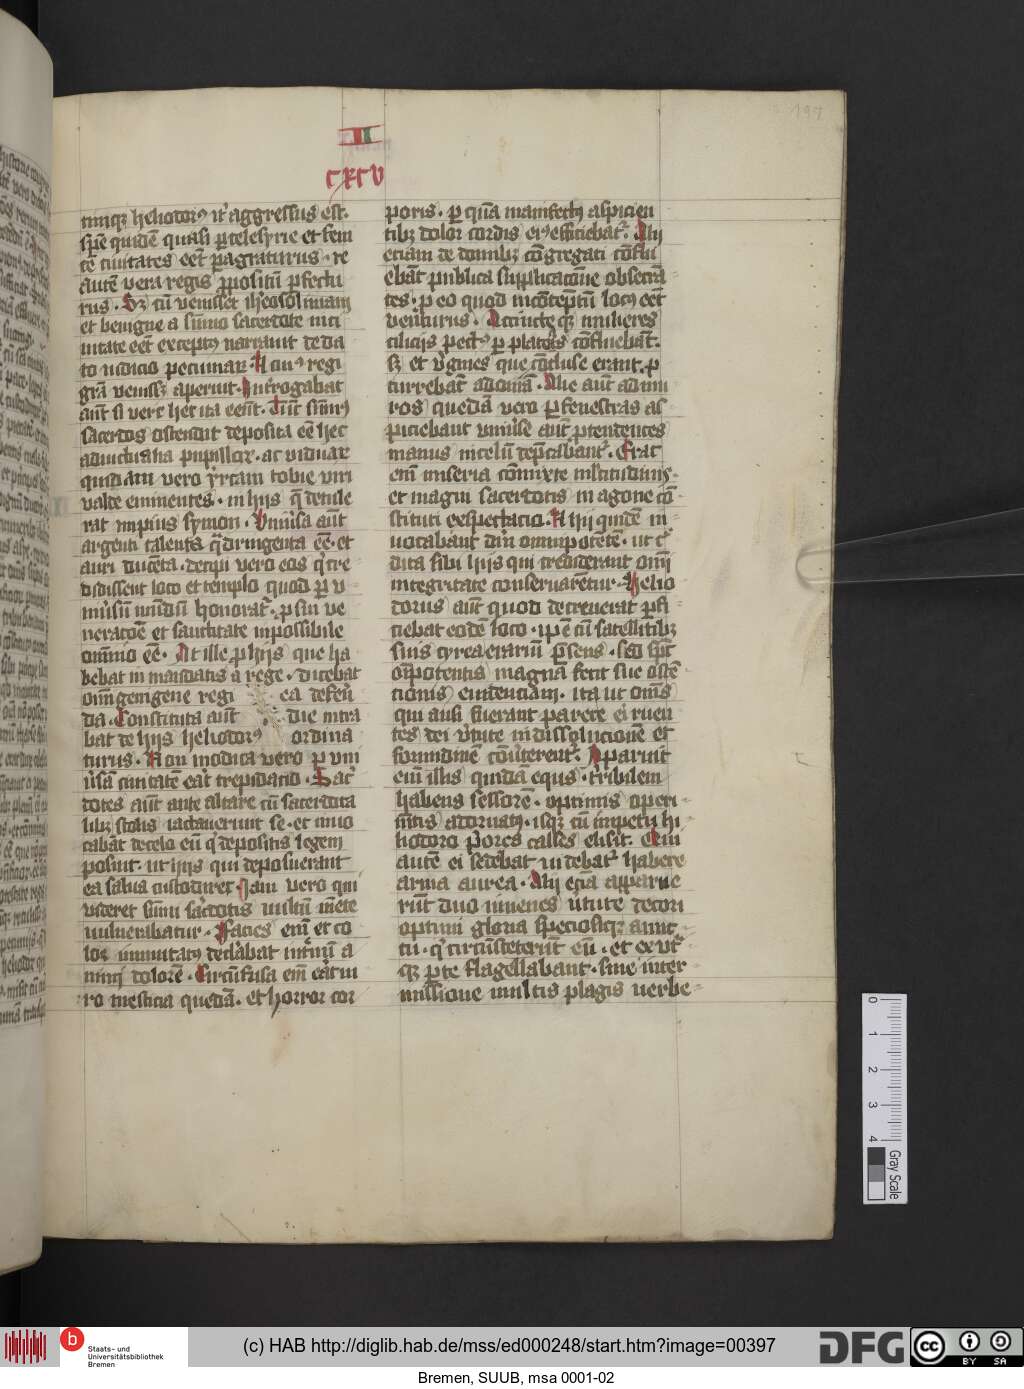 197
II
cxcv
timqꝫ heliodorꝰ it̉ aggressus est.
sp̄e quidē quasi ꝑ celesyrie et feni
cē ciuitates eēt ꝑagraturus. re
autē vera regis ꝓpositū ꝑfectu
rus. Sꝫ cū venisset iherosolimam
et benigne a sūmo sacerdote in ci
uitate eēt exceptꝰ narrauit de da
to iudicio pecuniarꝫ. et cuiꝰ rei
grā venissꝫ aperuit. Interrogabat
aūt si vere hec ita eēnt. Tūc sūmꝰ
sacerdos ostendit deposita eē hec
advictualia pupillorꝫ. ac viduarꝫ
quidam vero yrcani tobie viri
valde eminentes. in hijs q̄ detule
rat impius symon. Vniūsa aūt
argenti talenta q̄dringenta eē. et
auri ducēta. decipi vero eos qⁱ cre
didissent loco et templo quod ꝑ v
niūsū mūdū honorat̉. ꝓ sui ve
neratōē et sanctitate inpossibile
omīno eē. At ille ꝓ hijs que ha
bebat in mandatis a rege. dicebat
om̄i genigene regi ea deferē
da. Constituta aūt die intra
bat de hijs heliodorꝰ ordina
turus. Non modica vero ꝑ vni
ūsā ciuitatē erat trepidatio. Sac̉
dotes aūt ante altare cū sacerdota
libꝫ stolis iactauerunt se. et inuo
cabāt de celo eū qⁱ de positis legem
posuit. ut hijs qui deposuerant
ea salua custodiret. Iam vero qui
videret sūmi sac̉dotis vultū mēte
vulnerabatur. Facies em̄ et co
lor immutatꝰ declarabat int̉nū a
nimi dolorē. Circūfusa em̄ erat vi
ro mesticia quedā. et horror cor
poris. ꝑ quā manifestꝰ aspicien
tibꝫ dolor cordis eiꝰ efficiebat̉. Alij
etiam de domibꝫ cōgregati cōflu
ebāt publica supplicatōne obsecrā
tes. ꝓ eo quod in cōtēptū locꝰ eēt
venturus. Accincteqꝫ mulieres
cilicijs pectꝰ ꝑ plateas cōfluebāt.
Sꝫ et v̉gines que cōcluse erant. ꝓ
currebāt ad oniā. Alie aūt ad mu
ros quedā vero ꝑ fenestras as
piciebant vniūse aūt ꝓtendentes
manus in celū dep̄cabant̉. Erat
em̄ miseria cōmixte multitudinis.
et magni sacerdotis in agone cō
stituti exspectacio. Et hij quidē in
uocabant dm̄ omnipotētē. ut c̉
dita sibi hijs qui crediderant om̄i
integritate conseruarētur. Helio
dorus aūt quod decreuerat ꝑfi
ciebat eodē loco. ip̄e cū satellitibꝫ
suis cyrca erariū p̄sens. sed spūs
om̄potentis magnā fecit sue ostē
tionis euidentiam. ita ut om̄s
qui ausi fuerant parere ei ruen
tes dei v̉tute in dissolucionē et
formidinē cōuterent̉. Apparuit
em̄ illis quidā equs. tribilem
habens sessorē. optimis operi
mētis adornatꝰ. isqꝫ cū impetu he
liodoro p̉ores calces elisit. Qui
autē ei sedebat videbat̉ habere
arma aurea. Alij etiā apparue
rūt duo iuuenes v̉tute decori
optimi gloria speciosiqꝫ amic
tu. qⁱ circūsteterūt eū. et ex vt̉
qꝫ ꝑte flagellabant. sine inter
missione multis plagis verbe
0 1 2 3 4
Gray Scale
Staats- und
Universitätsbibliothek
Bremen
(c) HAB http://diglib.hab.de/mss/ed000248/start.htm?image=00397
DFG
cc BY SA
Bremen, SUUB, msa 0001-02